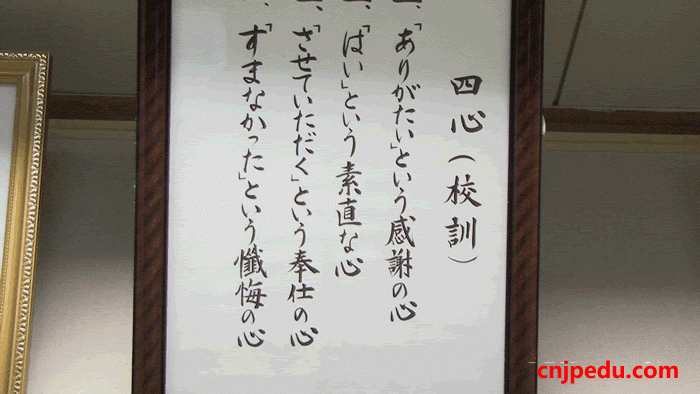 四心(校訓)
一、「ありがたい」という感謝の心
一、「はい」という素直な心
一、「させていただく」という奉仕の心
一、「すまなかった」という懺悔の心
cnjpedu.com